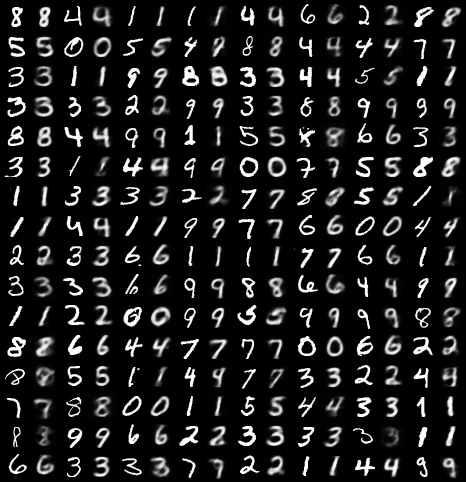 8 8 4 4 1 1 1 1 4 4 6 6 2 2 8 8
5 5 0 0 5 5 9 9 8 8 4 4 4 4 7 7
3 3 1 1 9 9 8 8 3 3 4 4 5 5 1 1
3 3 3 3 2 2 9 9 3 3 8 8 9 9 9 9
8 8 4 4 9 9 1 1 5 5 8 8 6 6 3 3
3 3 1 1 4 4 9 9 0 0 7 7 5 5 8 8
1 1 3 3 3 3 2 2 7 7 8 8 5 5 1 1
1 1 4 4 1 1 9 9 7 7 6 6 0 0 4 4
2 2 3 3 6 6 1 1 1 1 7 7 6 6 1 1
3 3 3 3 6 6 9 9 8 8 6 6 4 4 9 9
1 1 2 2 0 0 9 9 5 5 9 9 9 9 8 8
8 8 6 6 4 4 7 7 7 7 0 0 6 6 2 2
8 8 5 5 1 1 4 4 7 7 3 3 2 2 4 4
7 7 8 8 0 0 1 1 5 5 4 4 3 3 1 1
8 8 9 9 6 6 2 2 3 3 3 3 3 3 1 1
6 6 3 3 3 3 7 9 2 2 1 1 4 4 9 9